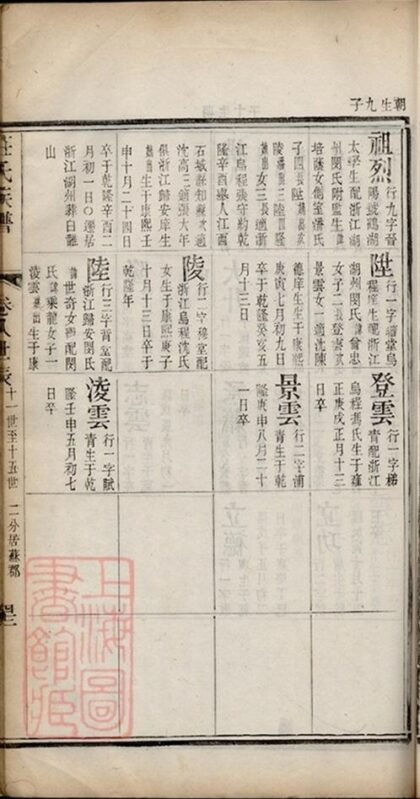 朝生九子
祖烈
行九字晉
陽號鶴湖
太學生配浙江湖
州閔氏附監生
培蔭女側室潘氏
子四長陞
陵
三陸
女三長適浙
江烏程張守約乾
隆辛酉舉人江西
石城縣知縣次適
沈高三適張大年
俱浙江歸安庠生
生于康熙壬
申十月二十四日
卒于乾隆辛酉二
月初一日○遷居
浙江湖州葬白龍
山
陞
行一字
堂烏
程庠生配浙江
湖州閔氏
曾忠
女子二長登雲次
景雲女一適沈陳
德庠生生于康熙
庚寅七月初九日
卒于乾隆癸亥五
月十三日
陵
行二字
堂配
浙江烏程沈氏
女生于康熙庚子
十月十三日卒于
乾隆年
陸
行三字
堂配
浙江歸安閔氏
世奇女再配閔
氏
乘龍女子一
淩雲
出生于康
登雲
行一字梯
青配浙江
烏程馮氏生于雍
正庚戌正月十三
日卒
景雲
行二字浦
青生于乾
隆庚申八月二十
一日卒
淩雲
行一字賦
青生于乾
隆壬申五月初七
日卒
氏族譜
卷八世表
十一世至十五世
二分居蘇郡
上海圖書館藏